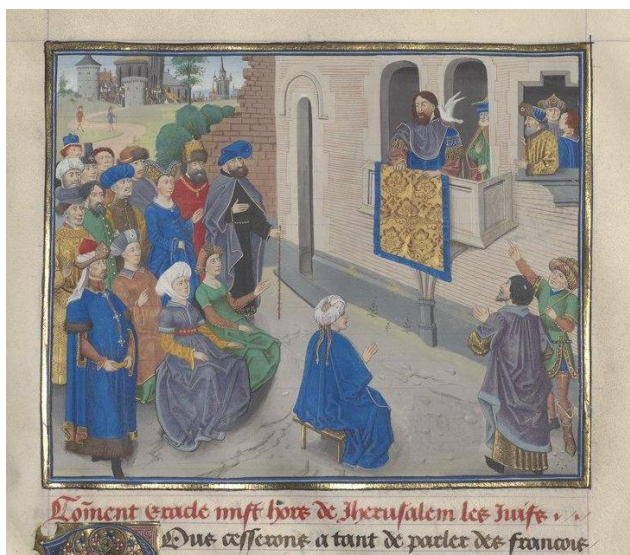 Co͞ment eracle mist hors de Jherusalem les Juifs. .
Ous cesserons a tant de parler des francois